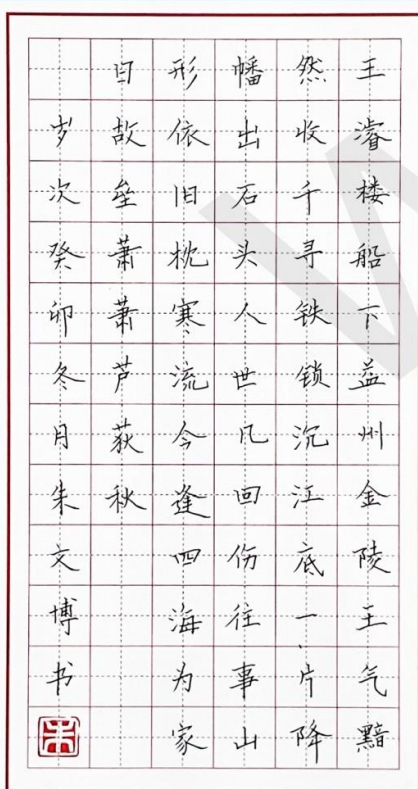 王濬楼船下益州金陵王气黯
然收千寻铁锁沉江底一片降
幡出石头人世几回伤往事山
形依旧枕寒流今逢四海为家
日故垒萧萧芦荻秋
岁次癸卯冬月朱文博书
朱